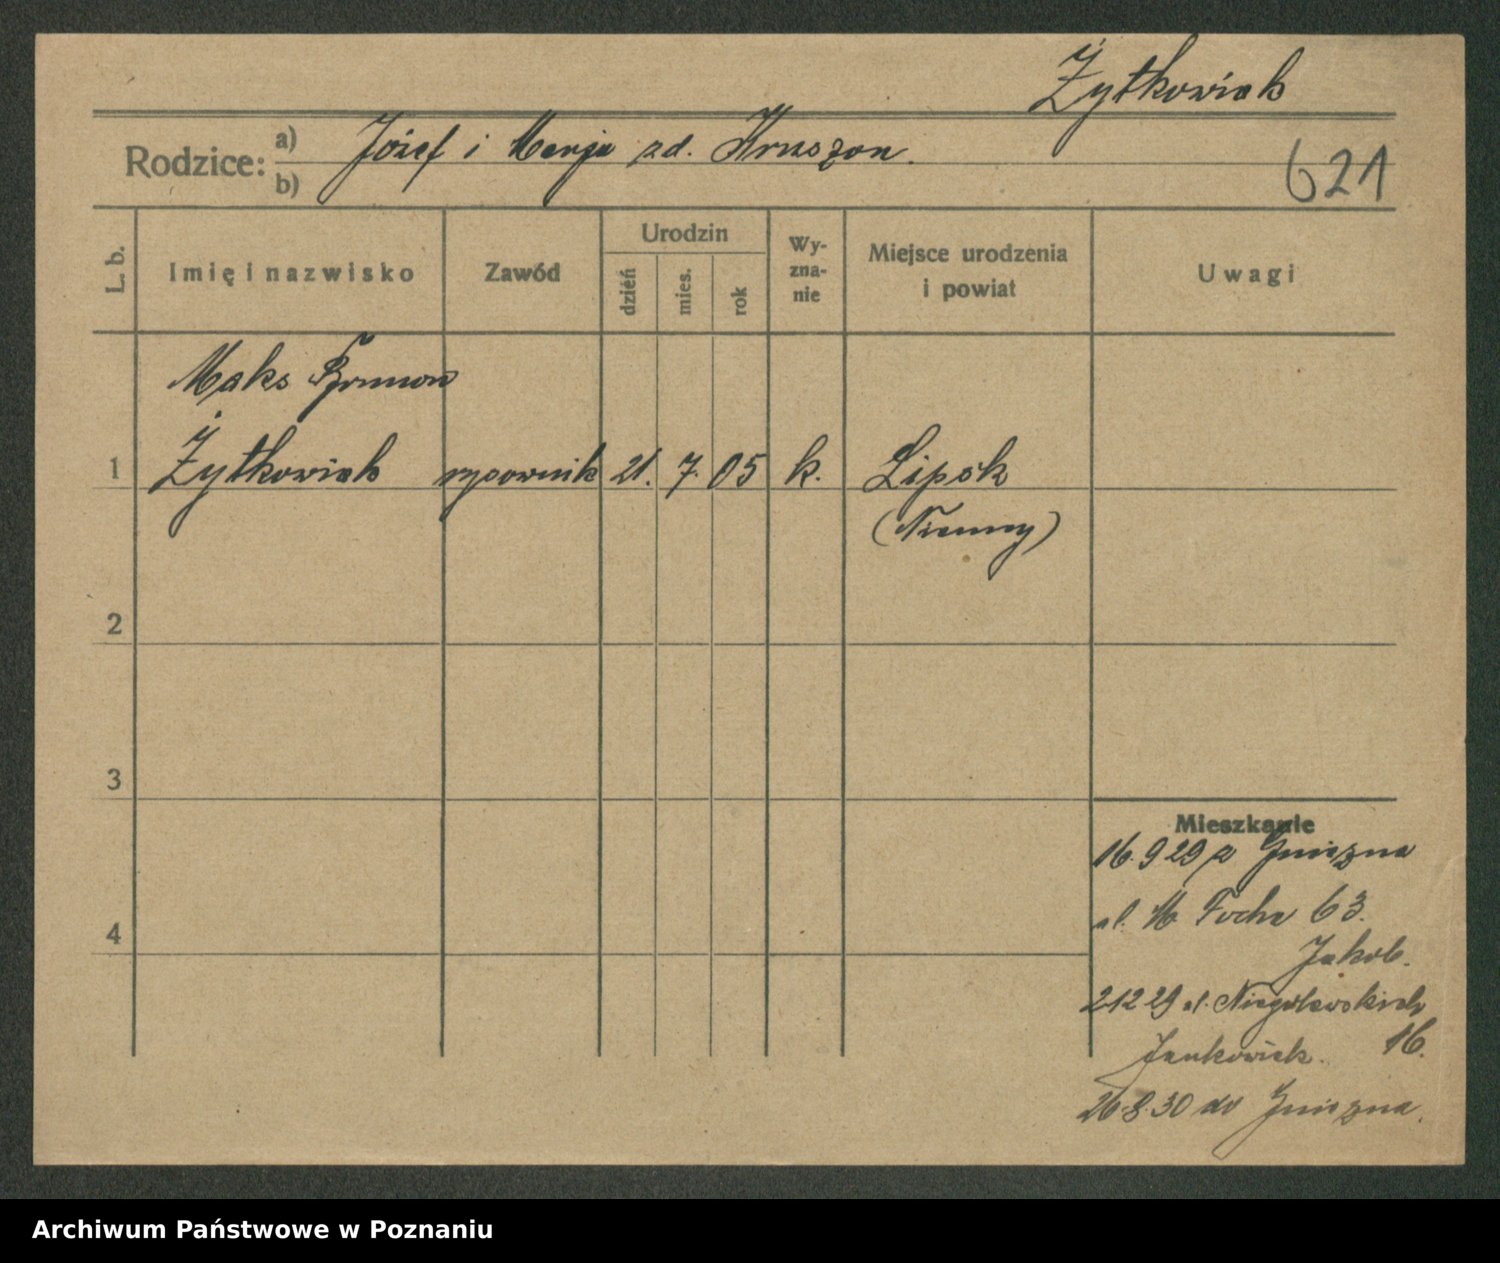 Żytkowiak
Rodzice: a) Józef i Marja zd.
b)
621
L. b.
Imię i nazwisko
Zawód
Urodzin
dzień
mies.
rok
Wy-
zna-
nie
Miejsce urodzenia
i powiat
Uwagi
Maks
1 Żytkowiak rysownik 21. 7. 05 k. Lipsk
(Niemcy)
2
3
4
Mieszkanie
16.9 29 z Gniezna
ul. M Focha 63.
Jakob.
2 12 29 ul. Niegolewskich
16.
Jankowiak.
26.8.30 do Gniezna.
Archiwum Państwowe w Poznaniu